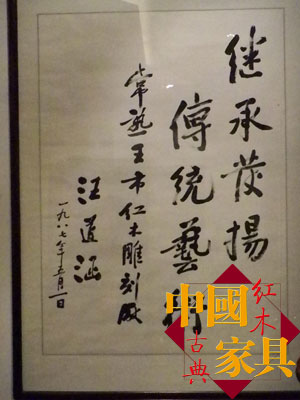 继承发揚
傳統藝術
常熟王市仁木雕刻厰
汪道涵
一九八七年五月一日
中國
紅木
古典
家具